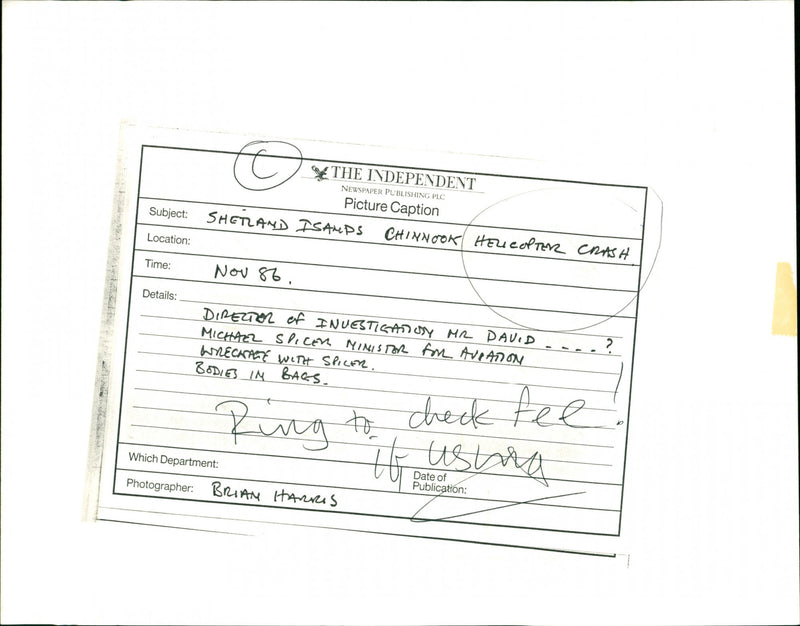 C
THE INDEPENDENT
NEWSPAPER PUBLISHING PLC
Picture Caption
Subject: SHETLAND ISANDS CHINNOOK HELICOPTER CRASH.
Location:
Time: NOV 86.
Details:
DIRECTOR OF INVESTIGATION MR DAVID ----?
MICHAEL SPICER MINISTER FOR AVIATION
WRECKAGE WITH SPICER.
BODIES IN BAGS.
Ring to check fee!
if using
Which Department:
Date of
Publication:
Photographer: BRIAN HARRIS